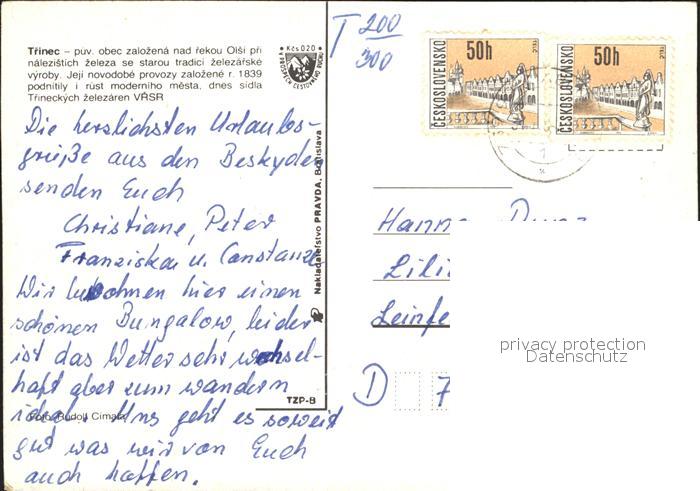 Třinec – pův. obec založená nad řekou Olší při
nálezištích železa se starou tradicí železářské
výroby. Její novodobé provozy založené r. 1839
podnítily i růst moderního města, dnes sídla
Třineckých železáren VŘSR
Kčs 0.20
T 200
300
ČESKOSLOVENSKO 50h TELČ
ČESKOSLOVENSKO 50h TELČ
Die herzlichsten Urlaubs-
grüße aus den Beskyden
senden Euch
Christiane, Peter
Franziska u. Constanze
Wir bewohnen hier einen
schönen Bungalow, leider
ist das Wetter sehr wechsel-
haft aber zum wandern
ideal. Uns geht es soweit
gut was wir von Euch
auch hoffen.
Foto: Rudolf Cimala
Nakladateľstvo PRAVDA, Bratislava
TZP-B
Hanne
Lili
Leinfe
D 7
privacy protection
Datenschutz